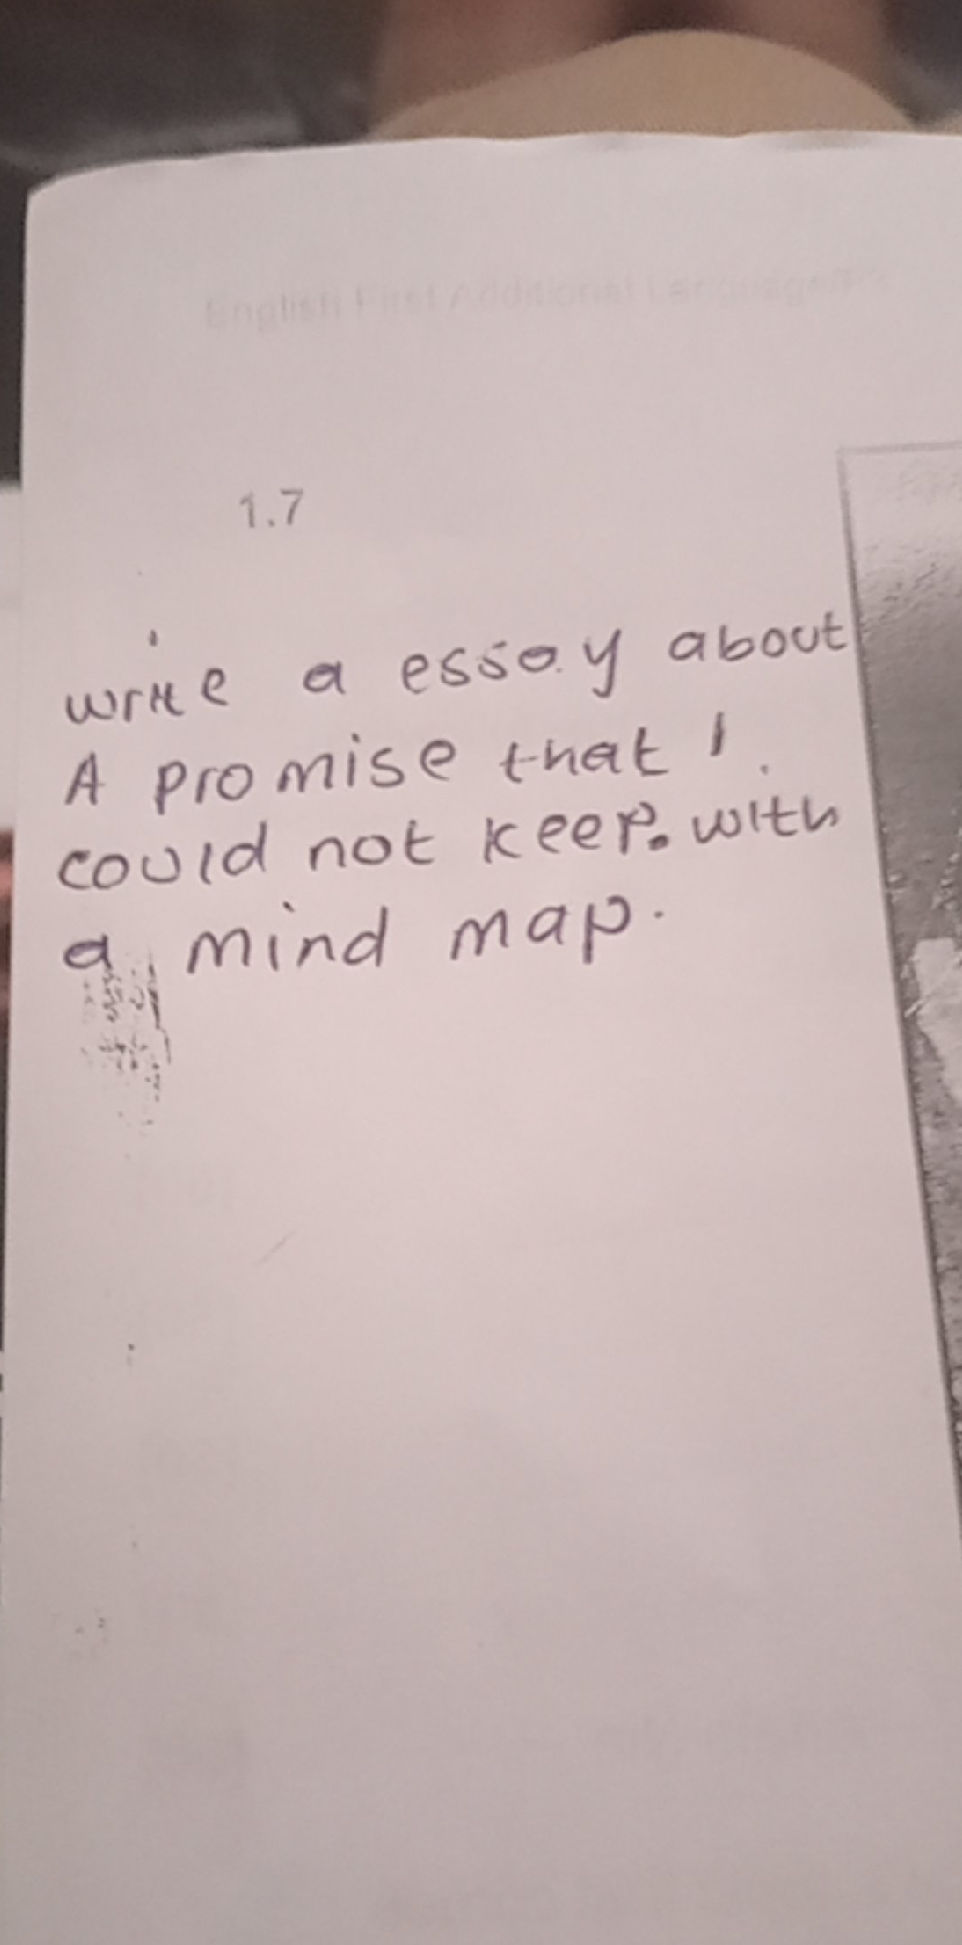 English First Additional Language
1.7
write a essay about
A promise that I
could not keep. with
a mind map.